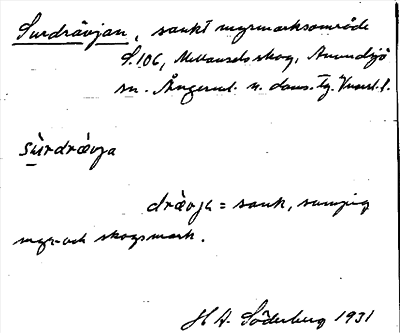 Surdrävjan, sankt myrmarksområde
S.106, Mellansels skog, Anundsjö
sn. Ångerml. n. doms. Tg. Västl. f.
sùrdrävja
drävja = sank, sumpig
myr- och skogsmark.
H A. Söderberg 1931